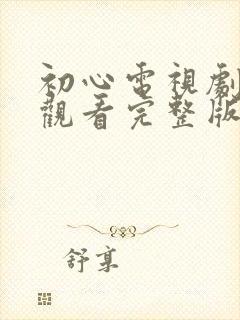 初心電視劇
觀看完整版
舒享